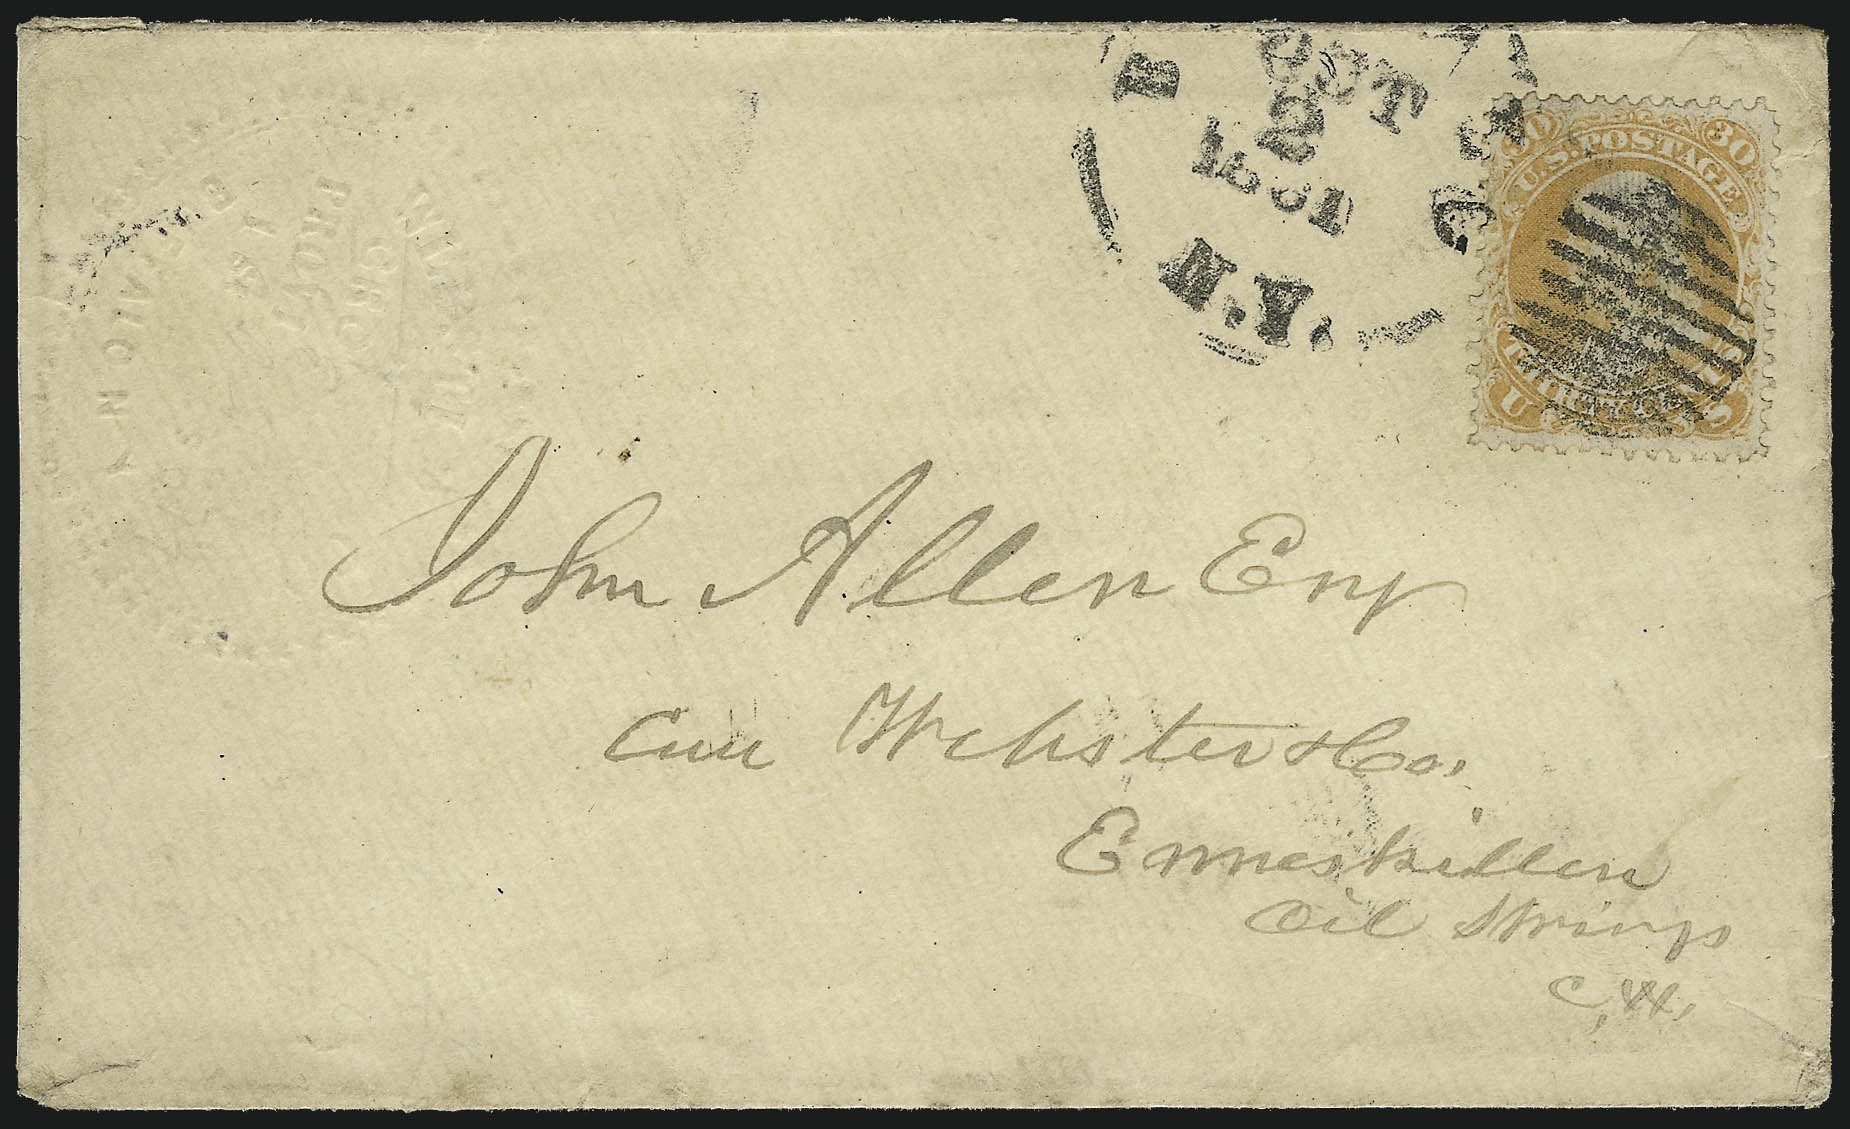 B
OCT
2
1861
N.Y.
30 30
U.S. POSTAGE
THIRTY CENTS
U S
John Allen Esq
Care Webster & Co.
Enneskillen
Oil Springs
C.W.